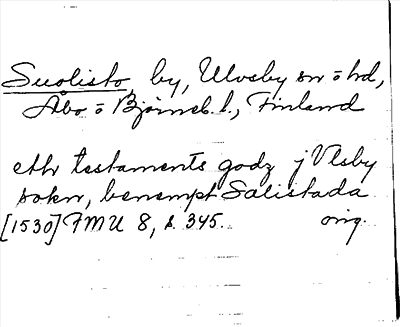 Suolisto, by, Ulvsby sn o hd,
Åbo o Björneb. l., Finland
eth testaments godz j Vlsby
sokn, benempt Salistada
[1530] FMU 8, s. 345. orig.